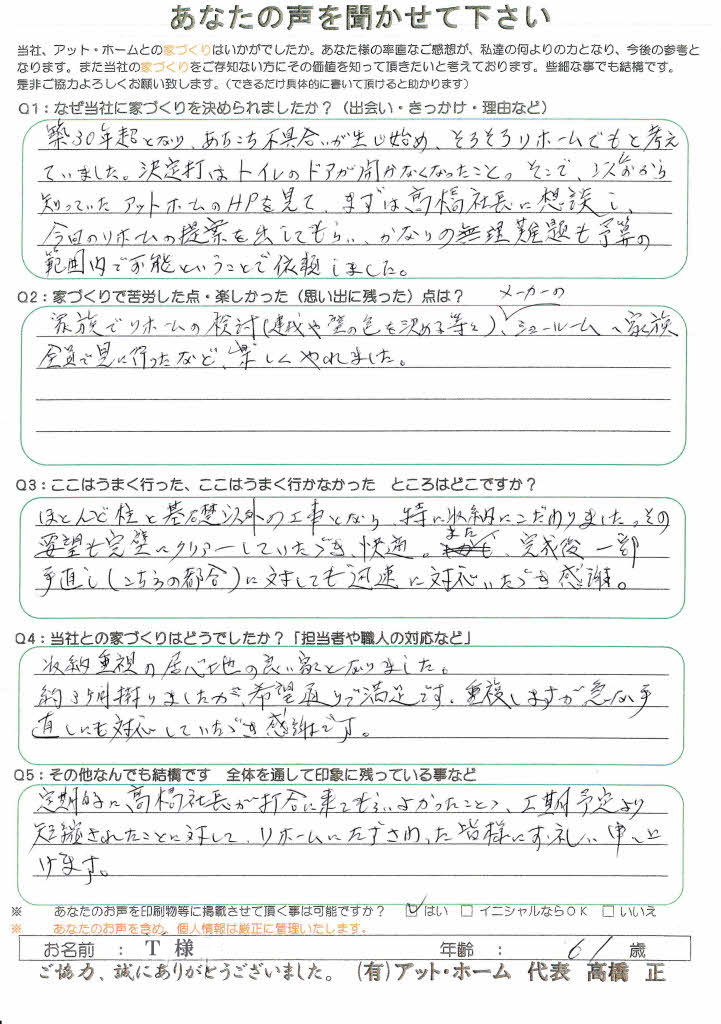 あなたの声を聞かせて下さい
当社、アット・ホームとの家づくりはいかがでしたか。あなた様の率直なご感想が、私達の何よりの力となり、今後の参考と
なります。また当社の家づくりをご存知ない方にその価値を知って頂きたいと考えております。些細な事でも結構です。
是非ご協力よろしくお願い致します。（できるだけ具体的に書いて頂けると助かります）
Q1：なぜ当社に家づくりを決められましたか？（出会い・きっかけ・理由など）
築30年超となり、あちこち不具合いが生じ始め、そろそろリホームでもと考え
ていました。決定打はトイレのドアが開かなくなったこと。そこで、以前から
知っていたアットホームのHPを見て、まずは高橋社長に想談し、
今回のリホームの提案を出してもらい、かなりの無理難題も予算の
範囲内で可能ということで依頼しました。
Q2：家づくりで苦労した点・楽しかった（思い出に残った）点は？
メーカーの
家族でリホームの検討(建成や壁の色を決める等と)、ショールームへ家族
全員で見に行ったなど、楽しくやれました。
Q3：ここはうまく行った、ここはうまく行かなかった　ところはどこですか？
ほとんど柱と基礎以外の工事となら、特に収納にこだわりました。その
要望も完璧にクリアーしていただき、快適。また、完成後一部
手直し(こちらの都合)に対しても迅速に対応いただき感謝。
Q4：当社との家づくりはどうでしたか？「担当者や職人の対応など」
収納重視の居心地の良い家となりました。
約3ヶ月掛りましたが、希望通りで満足です。重複しますが急な手
直しにも対応していただき感謝です。
Q5：その他なんでも結構です　全体を通して印象に残っている事など
定期的に高橋社長が打合に来てもらいよかったこと、工期予定より
短縮されたことに対して、リホームにたずさわった皆様にお礼い申し上
げます。
※　あなたのお声を印刷物等に掲載させて頂く事は可能ですか？　☑はい　□イニシャルならOK　□いいえ
※　あなたのお声を含め、個人情報は厳正に管理いたします。
お名前　：　T 様　年齢　：　61　歳
ご協力、誠にありがとうございました。（有）アット・ホーム　代表　高橋　正